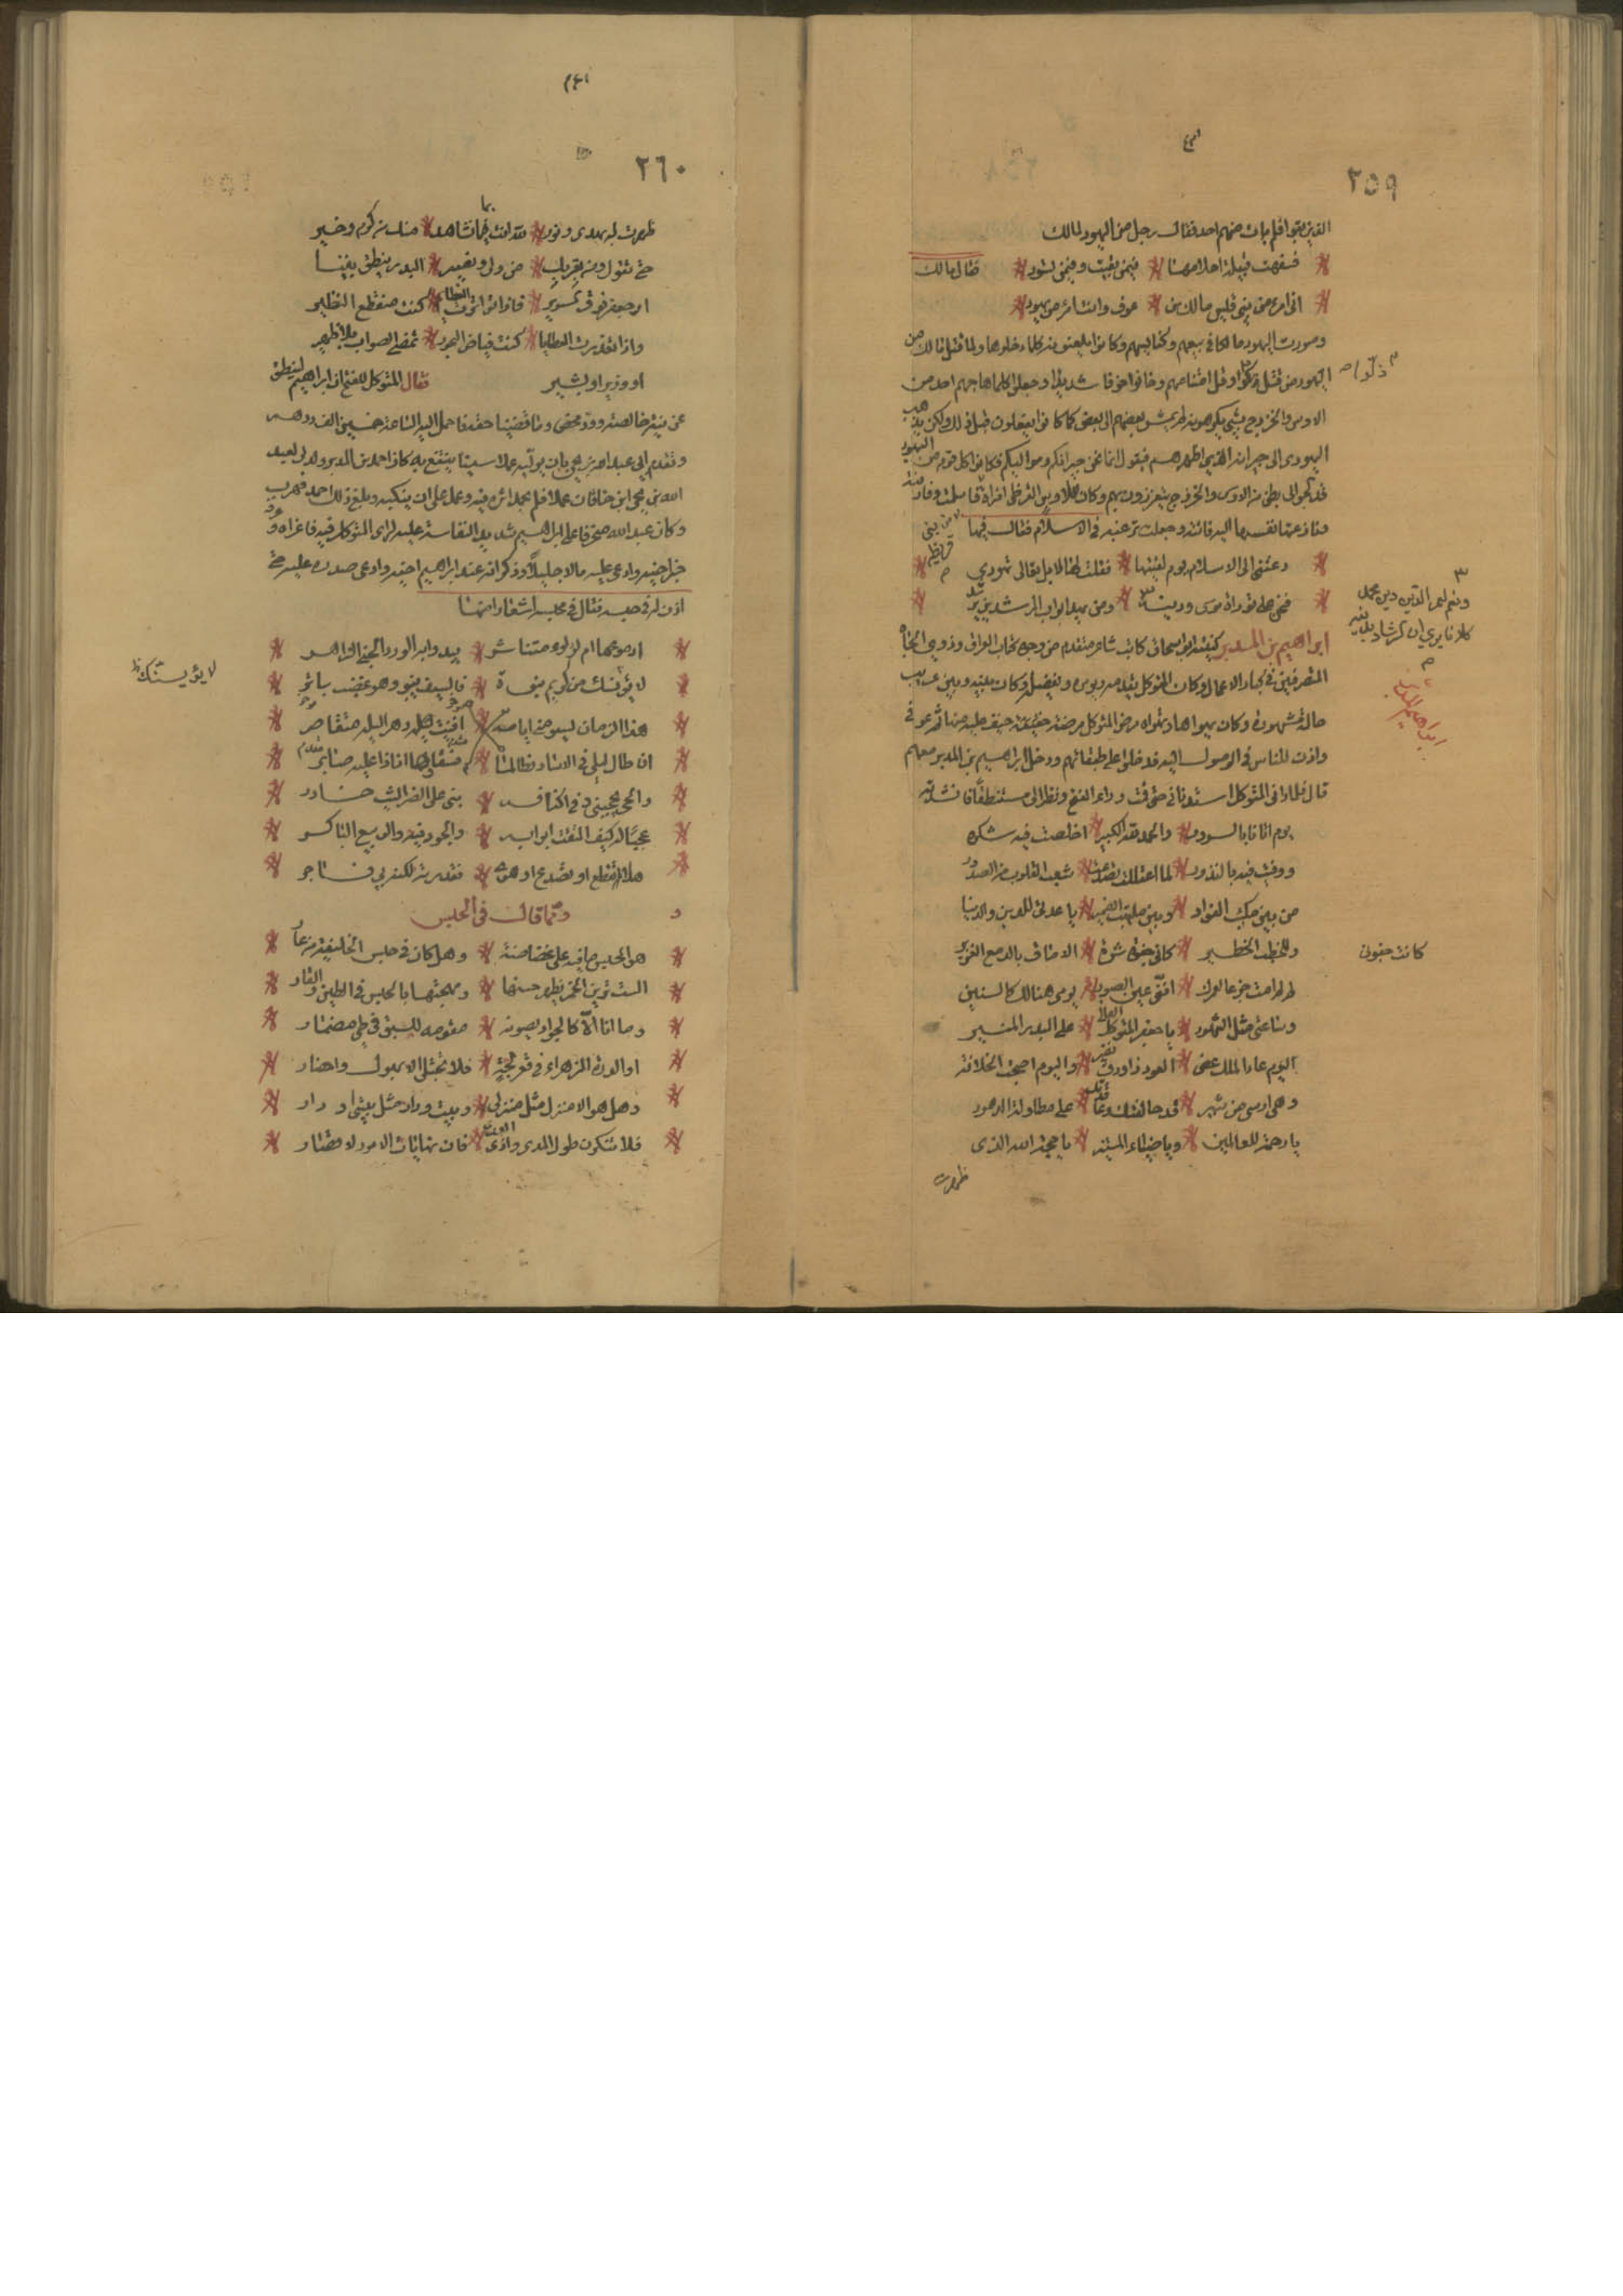 ٢٥٩
الذين بقوا فلم يات منهم احد فقال رجل من اليهود لمالك
فسفهت قيلة احلامها * فيمن بقيت وفيمن تسود * فقال مالك
اني امرء من بني قيس مالك بن * عوف وانت امرء من يهود
وصورت اليهود مالكا في بيعهم وكنائسهم وكانوا يلعنونه كلما دخلوها ولما قتل مالك من
اليهود من قتل ذلوا وقل امتناعهم وخافوا خوفا شديدا وجعلوا كلما هاجهم احد من
الاوس والخزرج بشيء يكرهونه لم يمش بعضهم الى بعض كما كانوا يفعلون قبل ذلك ولكن يذهب
اليهودي الى جيرانه الذين بين اظهرهم فيقول انما نحن جيرانكم ومواليكم فكان كل قوم من اليهود
قد لجوا الى بطن من الاوس والخزرج يتعززون بهم وكان للاوس القرظي امراة اسلمت وفارقته
ونازعتها نفسها اليه فاتته وجعلت ترغبه في الاسلام فقال فيها
من بني قريظة
دعتني الى الاسلام يوم لقيتها * فقلت لها لا بل تعالي تهودي
فنحن على توراة موسى ودينه * ومن يهد ابواب المراشد يرشد
ونعم لعمر الدين دين محمد
كلانا يرى ان الرشاد بدينه
ابراهيم بن المدبر كنيته ابو اسحاق كاتب شاعر متقدم من وجوه كتاب العراق وذوي الجاه
ابراهيم بن المدبر
المتصرفين في كبار الاعمال وكان المتوكل يقدمه ويؤثره ويفضله وكانت بينه وبين عريب
حال مشهورة وكان يهواها وتهواه مرض المتوكل مرضة خيف عليه منها ثم عوفي
واذن للناس في الوصول اليه فدخلوا على طبقاتهم ودخل ابراهيم بن المدبر معهم
قال فلما راني المتوكل استدناني حتى قمت وراء الفتح ونظر الي مستنطقا فانشدته
يوم اتانا بالسرور * والحمد لله الكبير * اخلصت فيه شكره
ووفيت فيه بالنذور * لما اعتللت تصدعت * شعب القلوب من الصدور
من بين ملتهب الفؤاد * وبين مكتئب الضمير * يا عدتي للدين والدنيا
وللخطب الخطير * كانت جفوني ثرة * الاماق بالدمع الغزير
كانت جفوني
لو لم امت جزعا لعمرك * انني عين الصبور * يومي هنالك كالسنين
وساعتي مثل الشهور * يا جعفر المتوكل العالي * على البدر المنير
اليوم عاد الملك غض * العود ذا ورق نضير * واليوم اصبحت الخلافة
وهي ارسى من ثبير * قد حالفتك وعاقدتك * على مطاولة الدهور
يا رحمة للعالمين * ويا ضياء المستنير * يا حجة الله الذي
ظهرت
٢٦٠
ظهرت له بهدى ونور * لله انت فما نشاهد * منك من كرم وخير
حتى نقول ومن بقربك * من ولي ونصير * البدر ينطق بيننا
ام جعفر فوق السرير * فاذا تواترت العظائم * كنت منقطع النظير
واذا تعذرت العطايا * كنت فياض البحور * تمضي الصواب بلا ظهير
او وزير او مشير
فقال المتوكل للفتح ان ابراهيم لينطق
عن نية خالصة وود محض وما قضينا حقه فاحمل اليه الساعة خمسين الف درهم
وتقدم الى عبيد الله بن يحيى بان يوليه عملا سريا ينتفع به كان احمد بن المدبر ولي لعبيد
الله بن يحيى ابن خاقان عملا فلم يحمد اثره فيه وعمل على ان ينكبه وبلغ ذلك احمد فهرب
وكان عبيد الله منحرفا على ابراهيم شديد النفاسة عليه لراي المتوكل فيه فاغراه وعرفه
خبر اخيه وادعى عليه مالا جليلا وذكر انه عند ابراهيم اخيه وادعى صدره عليه حتى
اذن له في حبسه فقال في محبسه اشعارا منها
ادموعها ام لؤلؤ متناثر * يندى به الورد الجني الزاهر
لا يؤنسك من كريم نبوة * فالسيف ينبو وهو عضب باتر
لا يؤيسنك ظ
هذا الزمان ليسومني ايامه *
ان طال ليلي في الاسار فطالما * افنيت ليلا دهر اليله متقاصر
والحبس يحجبني وفي اكنافه * مني على الضراء ليث خادر
عجبا له كيف التقت ابوابه * والجود فيه والربيع الباكر
هلا تقطع او تصدع او هوى * فعذرته لكنه بي فاخر
ومما قال في الحبس
هو الحبس ما فيه علي غضاضة * وهل كان في حبس الخليفة من عار
الست ترين الخمر يظهر حسنها * وبهجتها بالحبس في الطين والقار
وما انا الا كالجواد يصونه * مقومه للسبق في طي مضمار
او الدرة الزهراء في قعر لجة * فلا تجتلى الا بهول واخطار
وهل هو الا منزل مثل منزلي * وبيت ودار مثل بيتي او دار
فلا تنكرن طول المدى واذى العدى * فان نهايات الامور لاقصار